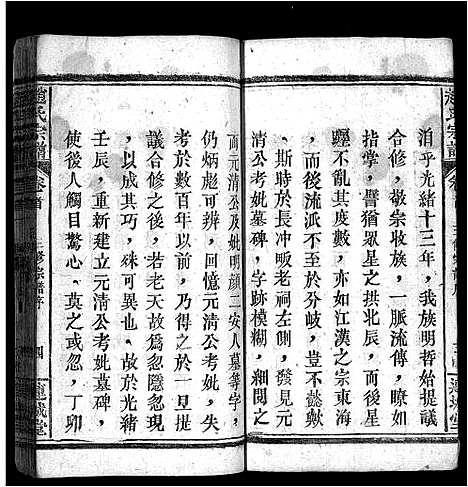 趙氏宗譜
洎乎光緒十三年，我族明哲始提議
合修，敬宗收族，一脈流傳，瞭若指
掌，譬猶眾星之拱北辰，而後星
躔不亂其度數，亦如江漢之宗東海
，而後流派不迷其分歧，豈不懿歟
、斯時於晚港老祠左側，發見元
清公考妣墓碑，字跡模糊，細閱之
而元清公及妣明顏二安人墓等字，
仍炳彪可辨，回憶元清公考妣，失
迷以來，近百年於是矣，今一提
議合修之後，若老天故爲隱忽現
，以成其巧，殊可異也，故於光緒
壬辰，重新建立元清公考妣墓碑，
使後人觸目驚心、莫之或忽，丁卯
趙氏宗譜
卷首
三修宗譜序
四